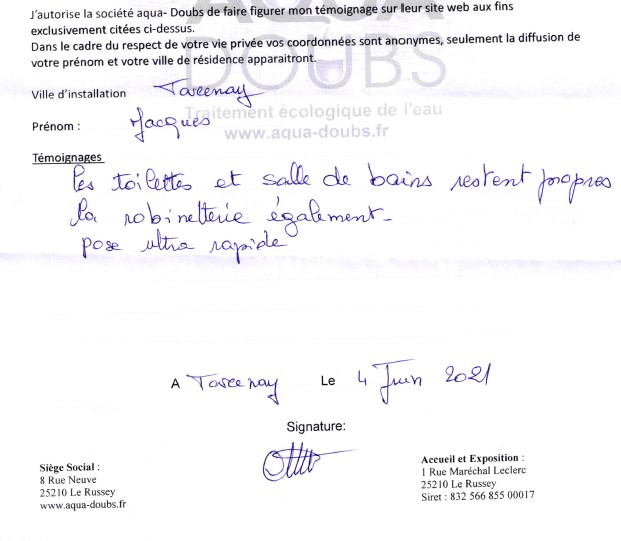 J'autorise la société aqua- Doubs de faire figurer mon témoignage sur leur site web aux fins
exclusivement citées ci-dessus.
Dans le cadre du respect de votre vie privée vos coordonnées sont anonymes, seulement la diffusion de
votre prénom et votre ville de résidence apparaitront.
AQUA
DOUBS
Ville d'installation Tarcenay
Traitement écologique de l'eau
Prénom : Jacques
www.aqua-doubs.fr
Témoignages
les toilettes et salle de bains restent propres
la robinetterie également.
pose ultra rapide
A Tarcenay Le 4 Juin 2021
Signature:
Siège Social :
8 Rue Neuve
25210 Le Russey
www.aqua-doubs.fr
Accueil et Exposition :
1 Rue Maréchal Leclerc
25210 Le Russey
Siret : 832 566 855 00017